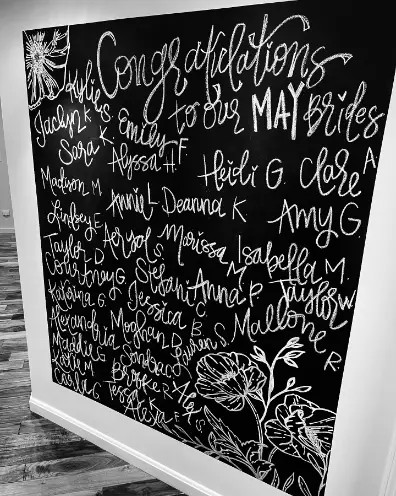 Congratulations
to our MAY Brides
Kylie S.
Jaclyn K
Emily F.
Sara K.
Alyssa H.
Heidi G. Clare A
Madison M
Annie L Deanna K
Amy G.
Lindsey F
Marissa M
Isabella M.
Taylor D
Courtney G.
Stefani
Anna P.
Taylor W.
Katrina G
Jessica C
Mallorie R.
Alexandria
Meghan B
Lauren S
Sandra
Brooke
Tess
Alexa F